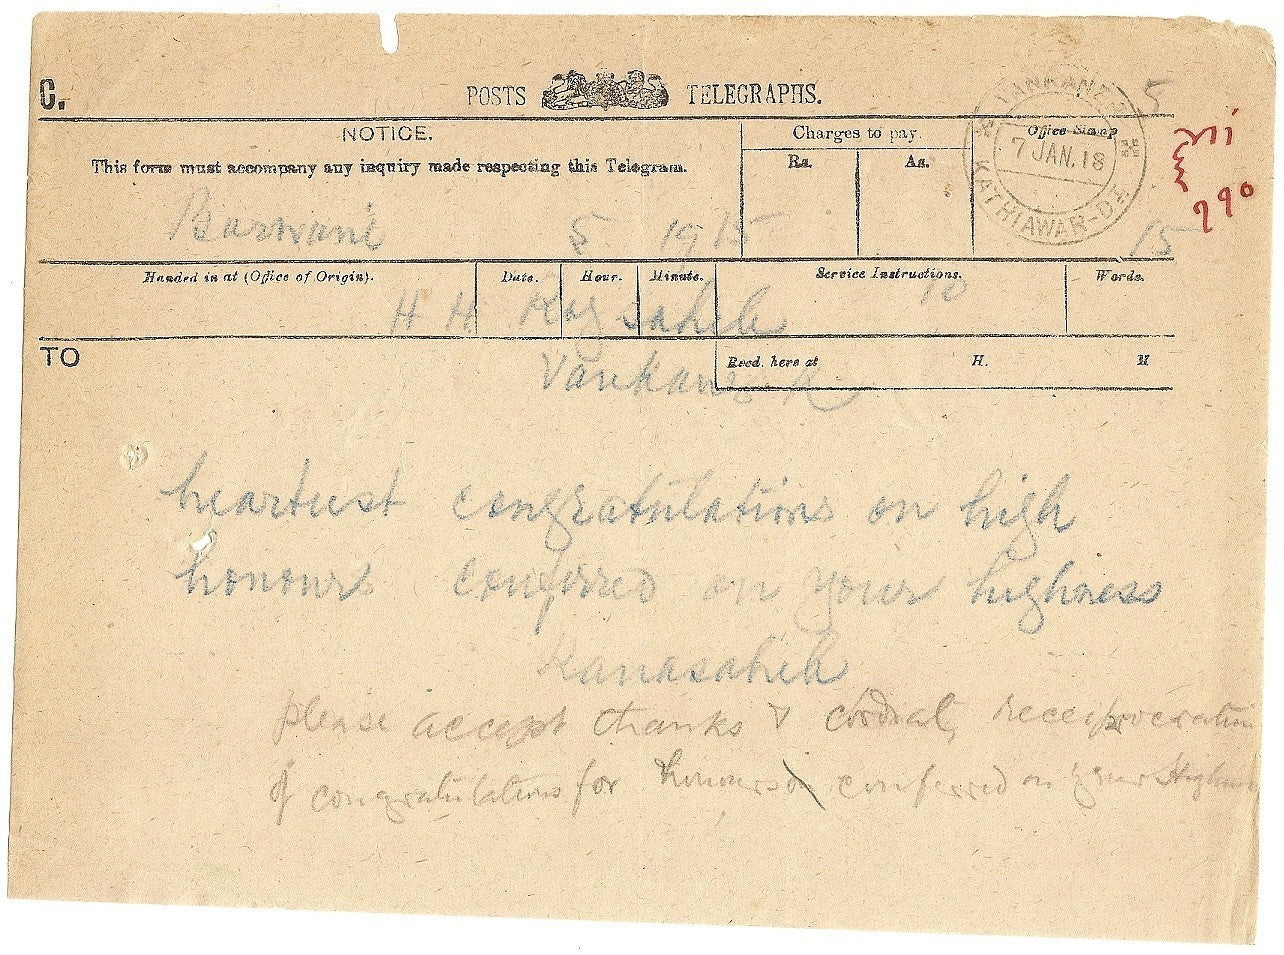 C.
POSTS TELEGRAPHS.
5
NOTICE.
This form must accompany any inquiry made respecting this Telegram.
Charges to pay.
Rs. As.
Office Stamp
VANKANER
7 JAN. 18
KATHIAWAR-DH
Barwani 5 19 15 15
Handed in at (Office of Origin). Date. Hour. Minute. Service Instructions. Words.
10
H H Raj Saheb
TO
Vankaner
Recd. here at H. M.
heartiest congratulations on high
honours conferred on your highness
Ranasaheb
please accept thanks & cordial reciprocation
of congratulations for honours conferred on your Highness